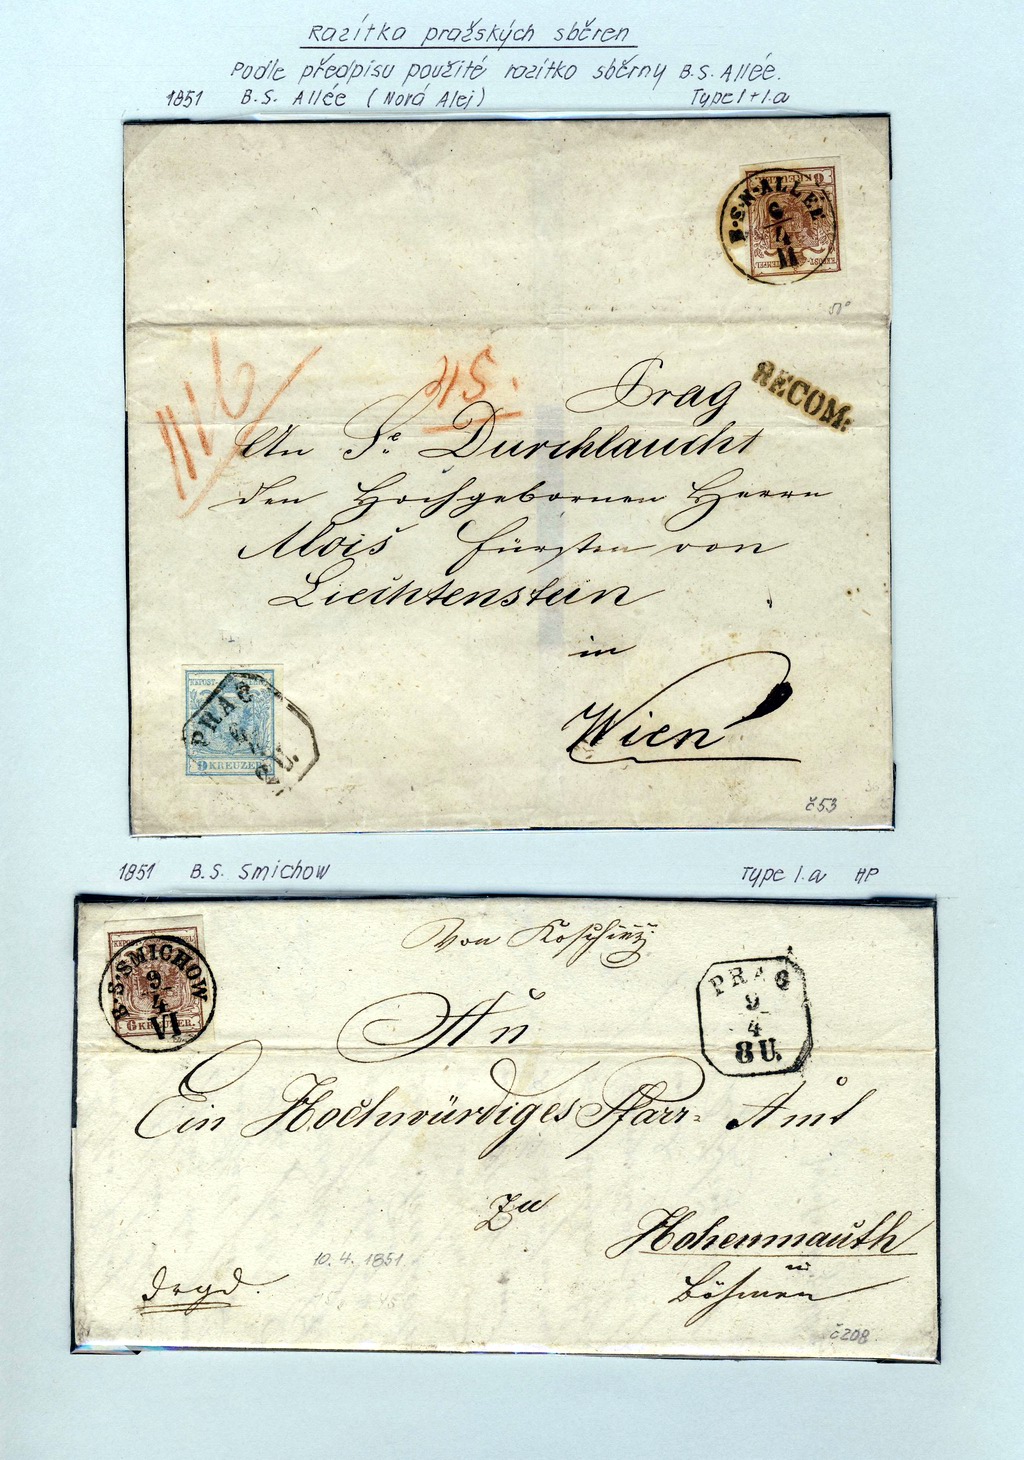 Razítka pražských sběren
Podle předpisu použité razítko sběrny B.S. Allée.
1851 B.S. Allée (Nová Alej) Type I + I.a
6 KREUZER
B·S·N·ALLÉE
6/4
II
RECOM:
45.
Prag
An Se Durchlaucht
den Hochgebornen Herrn
Alois Fürsten von
Liechtenstein
in
Wien
PRAG
2 U.
9 KREUZER
č 53
1851 B.S. Smichow Type I.a HP
B·S·SMICHOW
9/4
VI
6 KREUZER.
Von
PRAG
9
4
8 U.
An
Ein Hochwürdiges Pfarr= Amt
Zu
Hohenmauth
in
Böhmen
10. 4. 1851
č 208